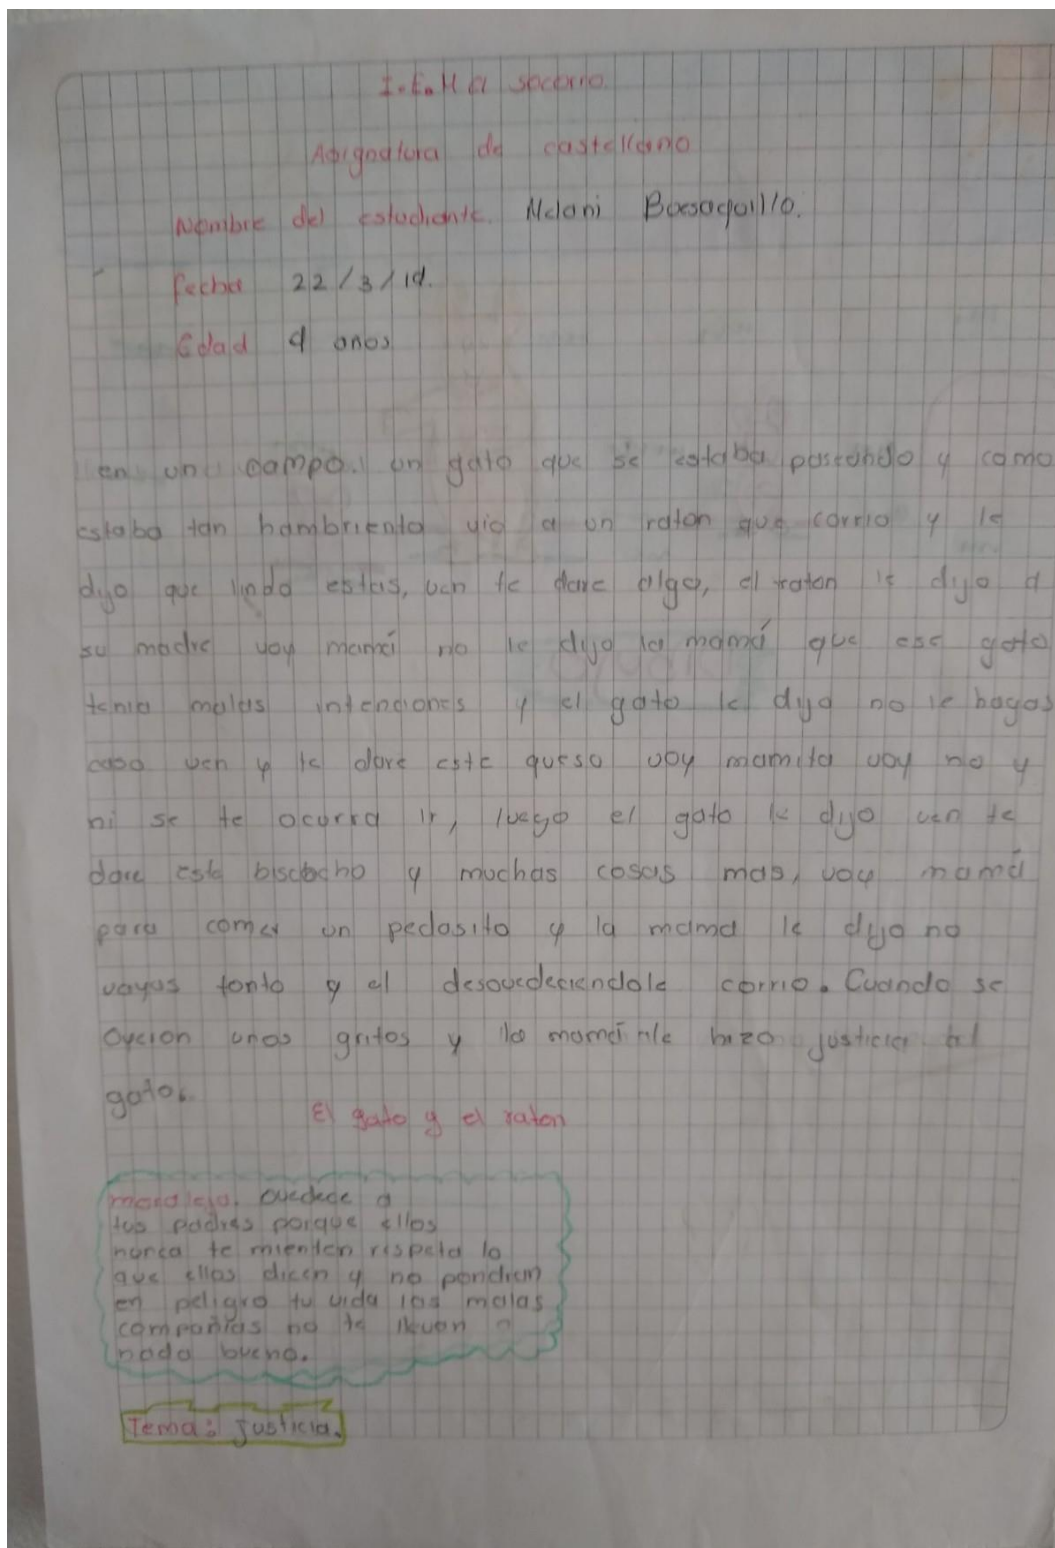 I.E.M El socorro.
Asignatura de castellano
Nombre del estudiante. Melani Bocsaquillo.
fecha 22/3/19.
Edad 9 anos
en un campo. un gato que se estaba paseando y como
estaba tan hambriento vio a un raton que corrio y le
dijo que lindo estas, ven te dare algo, el raton le dijo a
su madre voy mamá no le dijo la mamá que ese gato
tenia malas intenciones y el gato le dijo no le hagas
caso ven y te dare este queso voy mamita voy no y
ni se te ocurra ir, luego el gato le dijo ven te
dare este biscocho y muchas cosas mas, voy mamá
para comer un pedasito y la mama le dijo no
vayas tonto y el desovedeciendole corrio. Cuando se
oyeron unos gritos y la mamá le hizo justicia al
gato.
El gato y el raton
moraleja. ovedede a
tus padres porque ellos
nunca te mienten respeta lo
que ellos dicen y no pondran
en peligro tu vida las malas
compañias no te llevan a
nada bueno.
Tema: justicia.